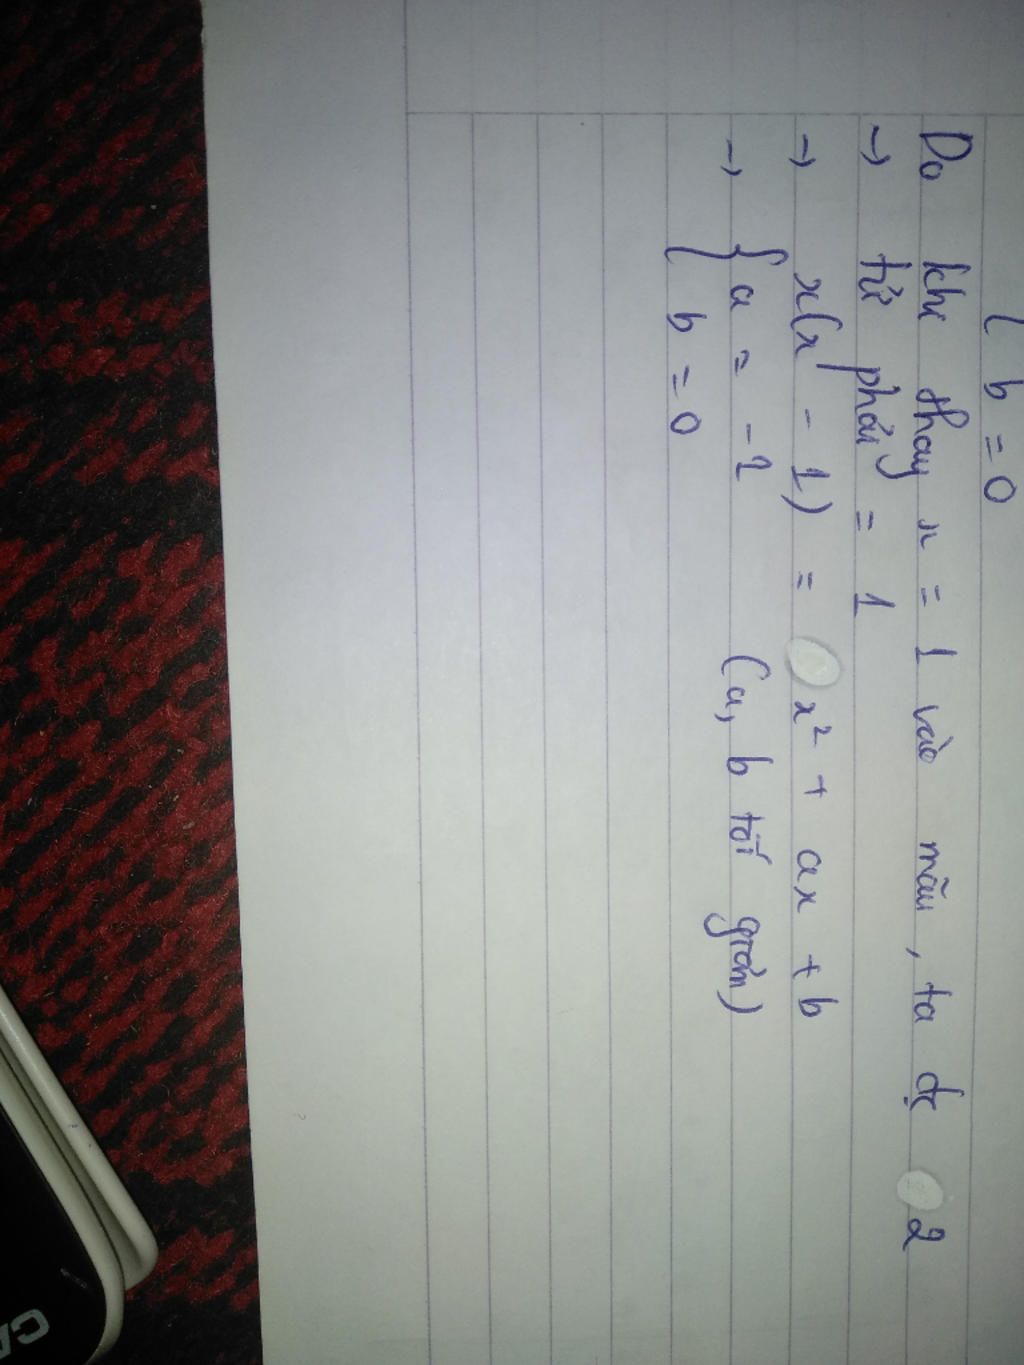 { b = 0
Do khi thay x = 1 vào mẫu, ta đc 2
→ tử phải = 1
→ x(x - 1) = x² + ax + b
→ { a = -1 (a, b tối giản)
{ b = 0
CA